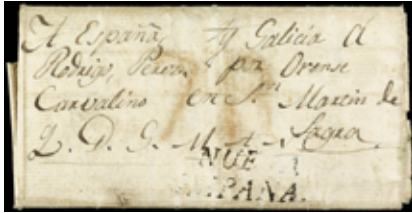 A España, y Galicia A
Rodrigo, Perez por Orense
Carvalino en S.n Martin de
Q. D. G. M. A. Lagra.
NUE
ESPAÑA.